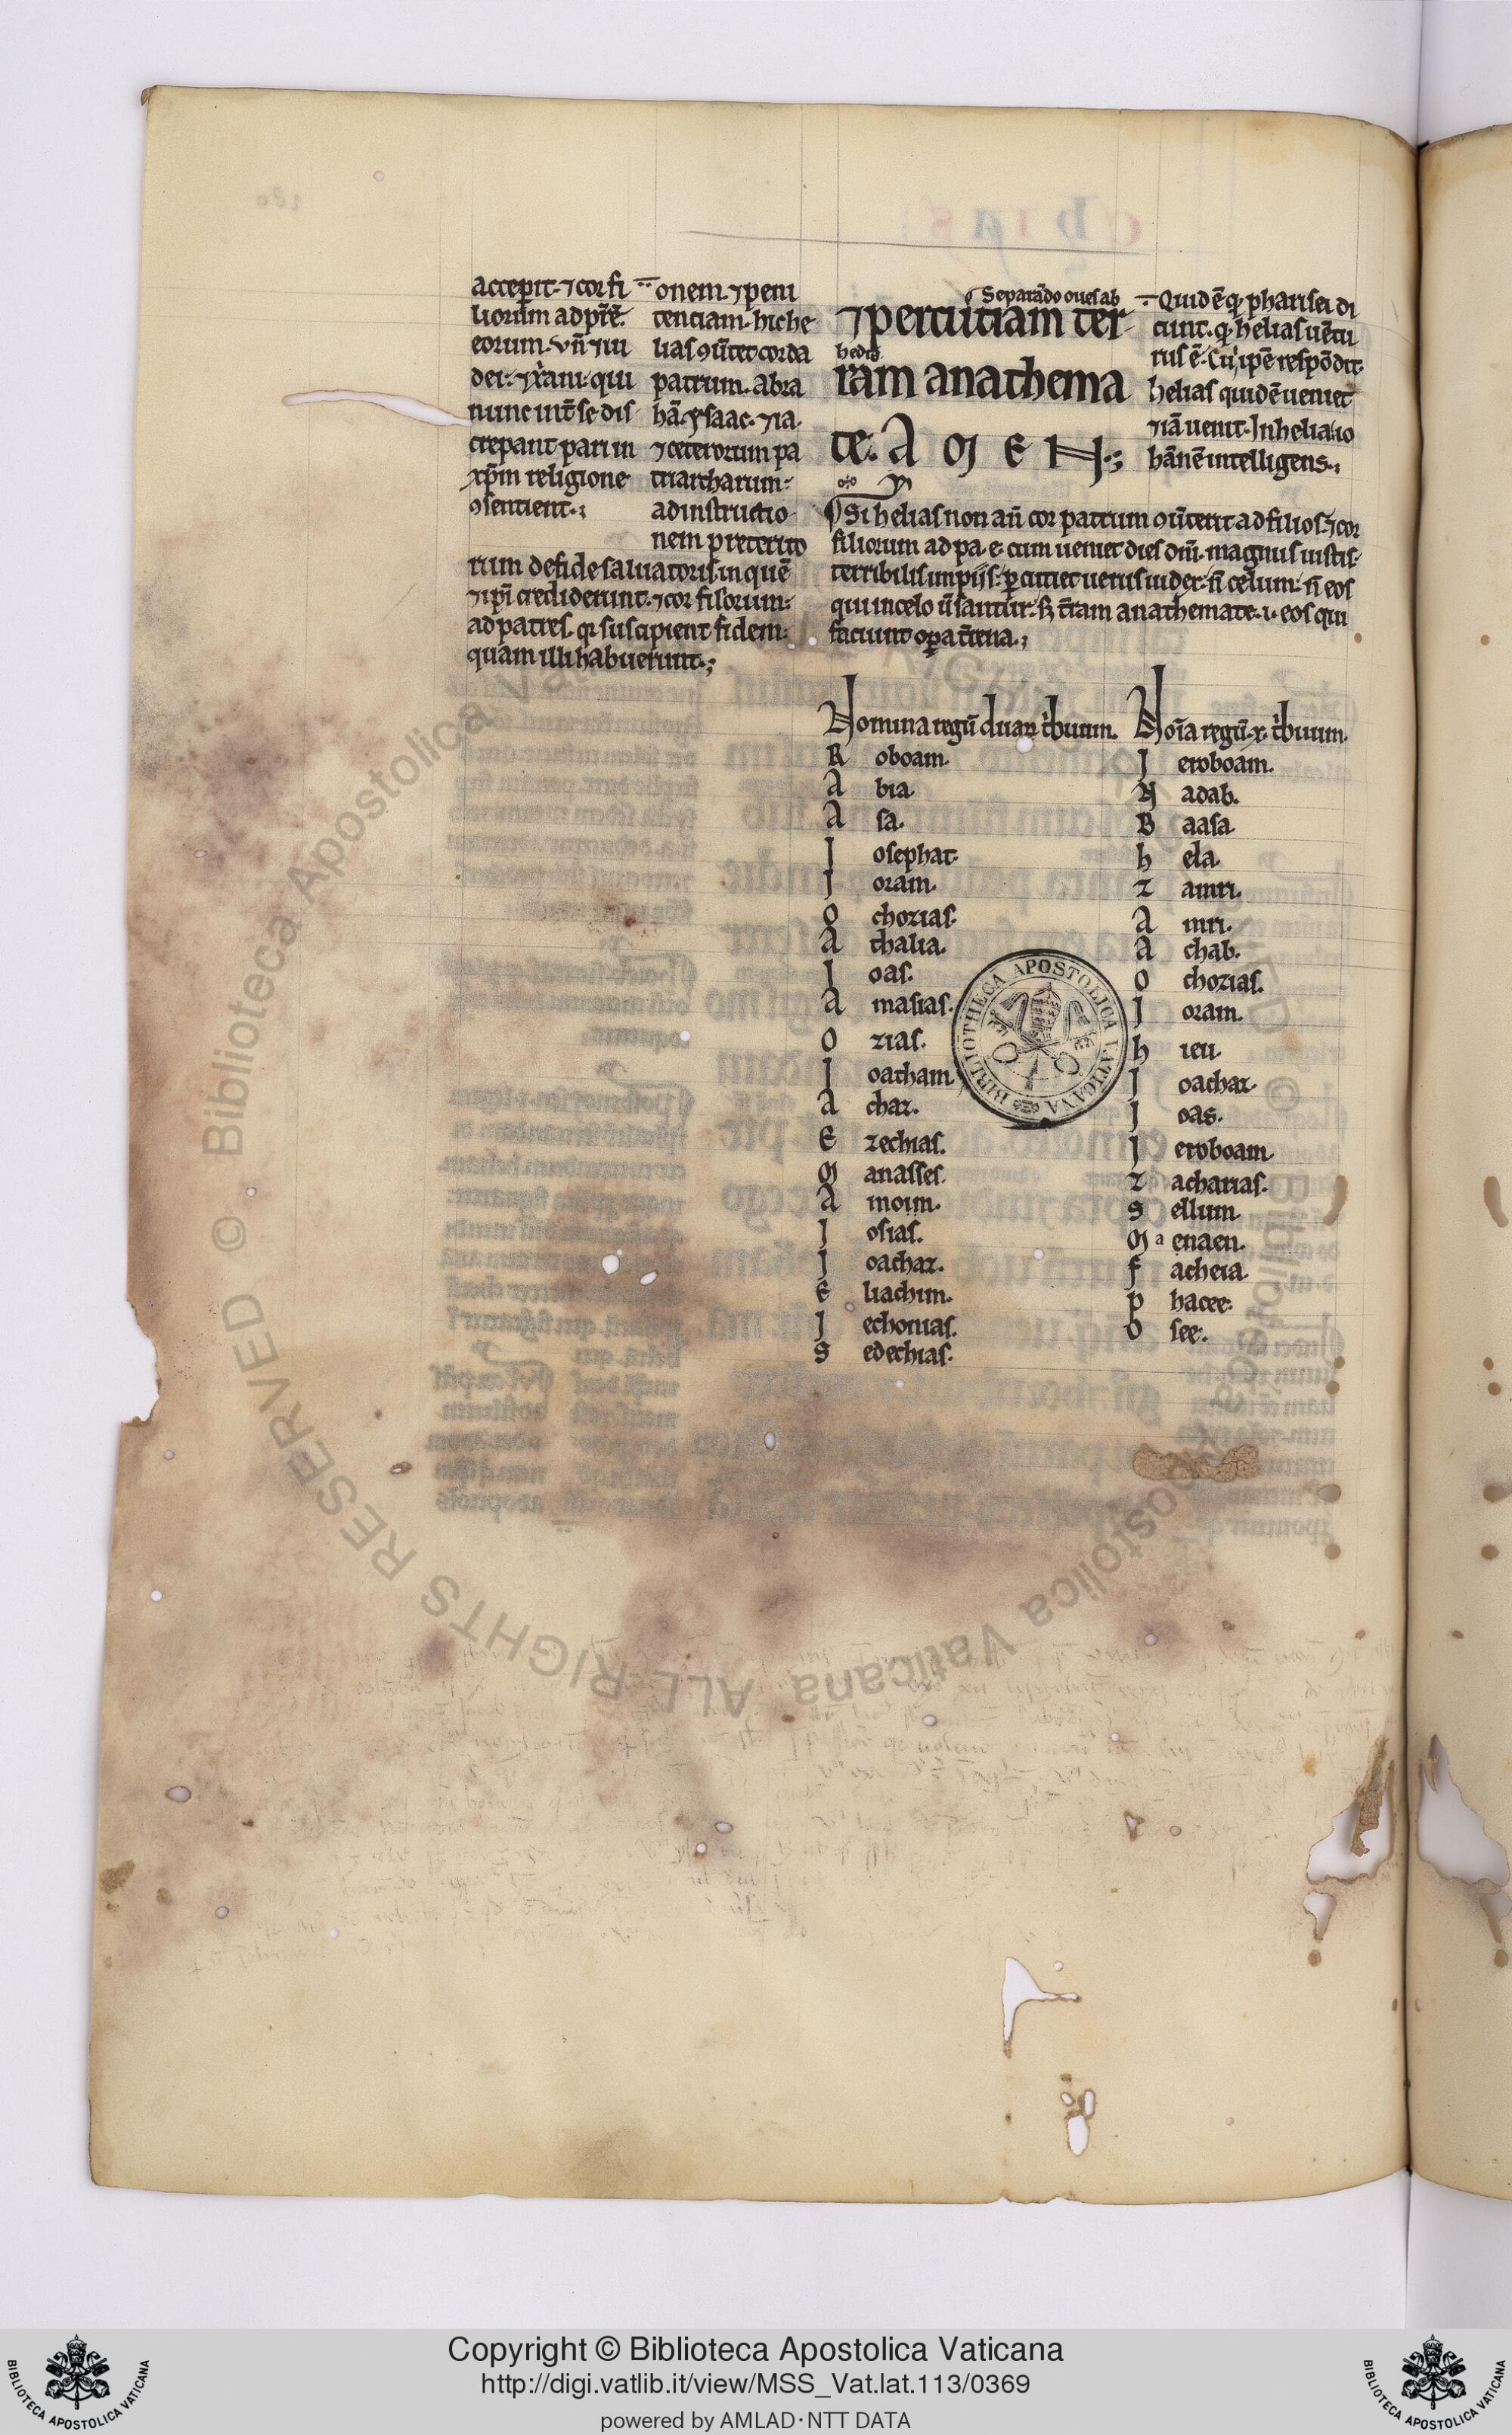 accepit. ⁊ cor fi
lioꝝum ad pr̄es
eorum. vn̄ ⁊ iu
dei. ⁊ xp̄ani. qui
nunc int̄ se dis
crepant pari in
xp̄m religione
ꝯsentient.;
onem. ⁊ peni
tenciam. hic he
lias ꝯū̄tet corda
patrum. abra
hā. ysaac. ⁊ ia.
⁊ ceterorum pa
triarcharum.
ad instructio
nem preterito
rum de fide saluatoris in quē
⁊ ip̄i crediderunt. ⁊ cor filiorum.
ad patres. q̄ suscipient fidem.
quam illi habuerunt.;
Separādo oues ab
⁊ percutiam ter
hedis
ram anathema
te. A M E N.;
Quid ē q̄ pharisei di
cunt. q̄ helias uētu
rus ē. Cui ip̄e respōdit.
helias quidē ueniet
⁊ iā uenit. In helia io
hānē intelligens.;
Si helias non an̄ cor patrum ꝯū̄terit ad filios. ⁊ cor
filiorum ad pa. e. cum ueniet dies dn̄i. magnus iustis.
terribilis impiis. ꝑcutiet uerus iudex. n̄ celum. n̄ eos
qui in celo ūsantur. s̄ t̄ram anathemate. i. eos qui
faciunt oꝑa t̄rena.;
Nomina regū duaꝝ t̄buum.
R oboam.
A bia.
A sa.
J osephat.
J oram.
O chozias.
A thalia.
J oas.
A masias.
O zias.
J oatham.
A chaz.
E zechias.
M anasses.
A mom.
J osias.
J oachaz.
E liachim.
J echonias.
S edechias.
Noīa regū. x. t̄buum.
J eroboam.
N adab.
B aasa.
h ela.
Z amri.
A mri.
A chab.
O chozias.
J oram.
h ieu.
J oachaz.
J oas.
J eroboam.
Z acharias.
S ellum.
M a enaen.
f acheia.
p hacee.
O see.
BIBLIOTHECA APOSTOLICA VATICANA
© Biblioteca Apostolica Vaticana ALL RIGHTS RESERVED
Copyright © Biblioteca Apostolica Vaticana
http://digi.vatlib.it/view/MSS_Vat.lat.113/0369
powered by AMLAD·NTT DATA
BIBLIOTECA APOSTOLICA VATICANA
BIBLIOTECA APOSTOLICA VATICANA